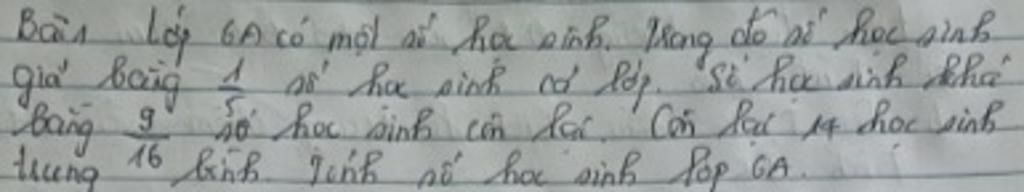 Bài 1 Lớp 6A có một số học sinh. Trong đó số học sinh
giỏi bằng 1/5 số học sinh cả lớp. Số học sinh khá
bằng 9/16 số học sinh còn lại. Còn lại 14 học sinh
trung bình. Tính số học sinh lớp 6A.